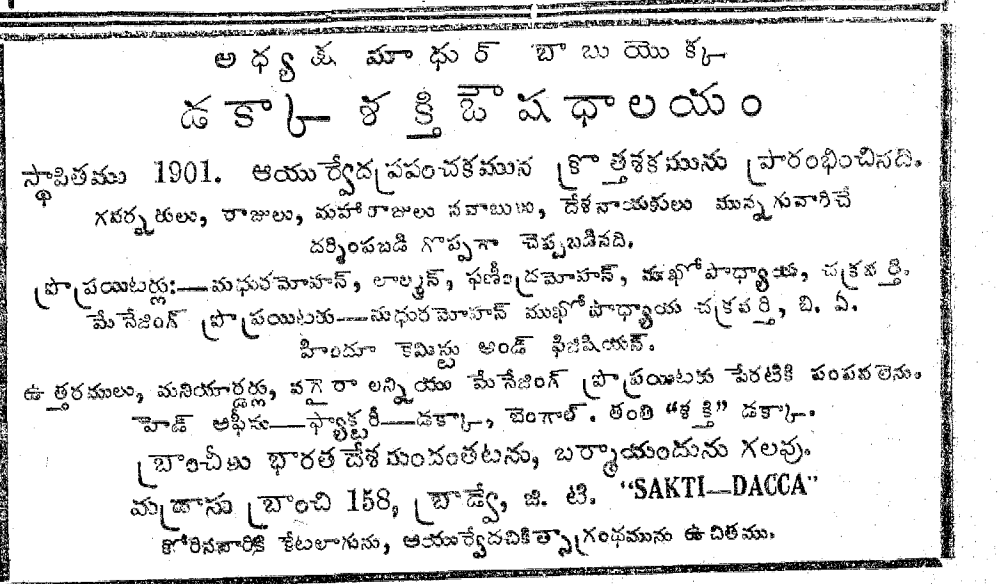 అధ్యక్ష మాధుర్ బాబుయొక్క
డక్కా శక్తి ఔషధాలయం
స్థాపితము 1901. ఆయుర్వేదప్రపంచకమున క్రొత్తశకమును ప్రారంభించినది.
గవర్నరులు, రాజులు, మహారాజులు నవాబులు, దేశనాయకులు మున్నగువారిచే
దర్శింపబడి గొప్పగా చెప్పబడినది.
ప్రొప్రయిటర్లు:—మధురమోహన్, లాల్మన్, ఫణీంద్రమోహన్, ముఖోపాధ్యాయ, చక్రవర్తి.
మేనేజింగ్ ప్రొప్రయిటరు—మధురమోహన్ ముఖోపాధ్యాయ చక్రవర్తి, బి. ఏ.
హిందూ కెమిస్టు అండ్ ఫిజిషియన్.
ఉత్తరములు, మనియార్డర్లు, వగైరా లన్నియు మేనేజింగ్ ప్రొప్రయిటరు పేరటికి పంపవలెను.
హెడ్ ఆఫీసు—ఫ్యాక్టరీ—డక్కా, బెంగాల్. తంతి “శక్తి” డక్కా.
బ్రాంచీలు భారతదేశమందంతటను, బర్మాయందును గలవు.
మద్రాసు బ్రాంచి 158, బ్రాడ్వే, జి. టి. “SAKTI—DACCA”
కోరినవారికి కేటలాగును, ఆయుర్వేదచికిత్సాగ్రంథమును ఉచితము.